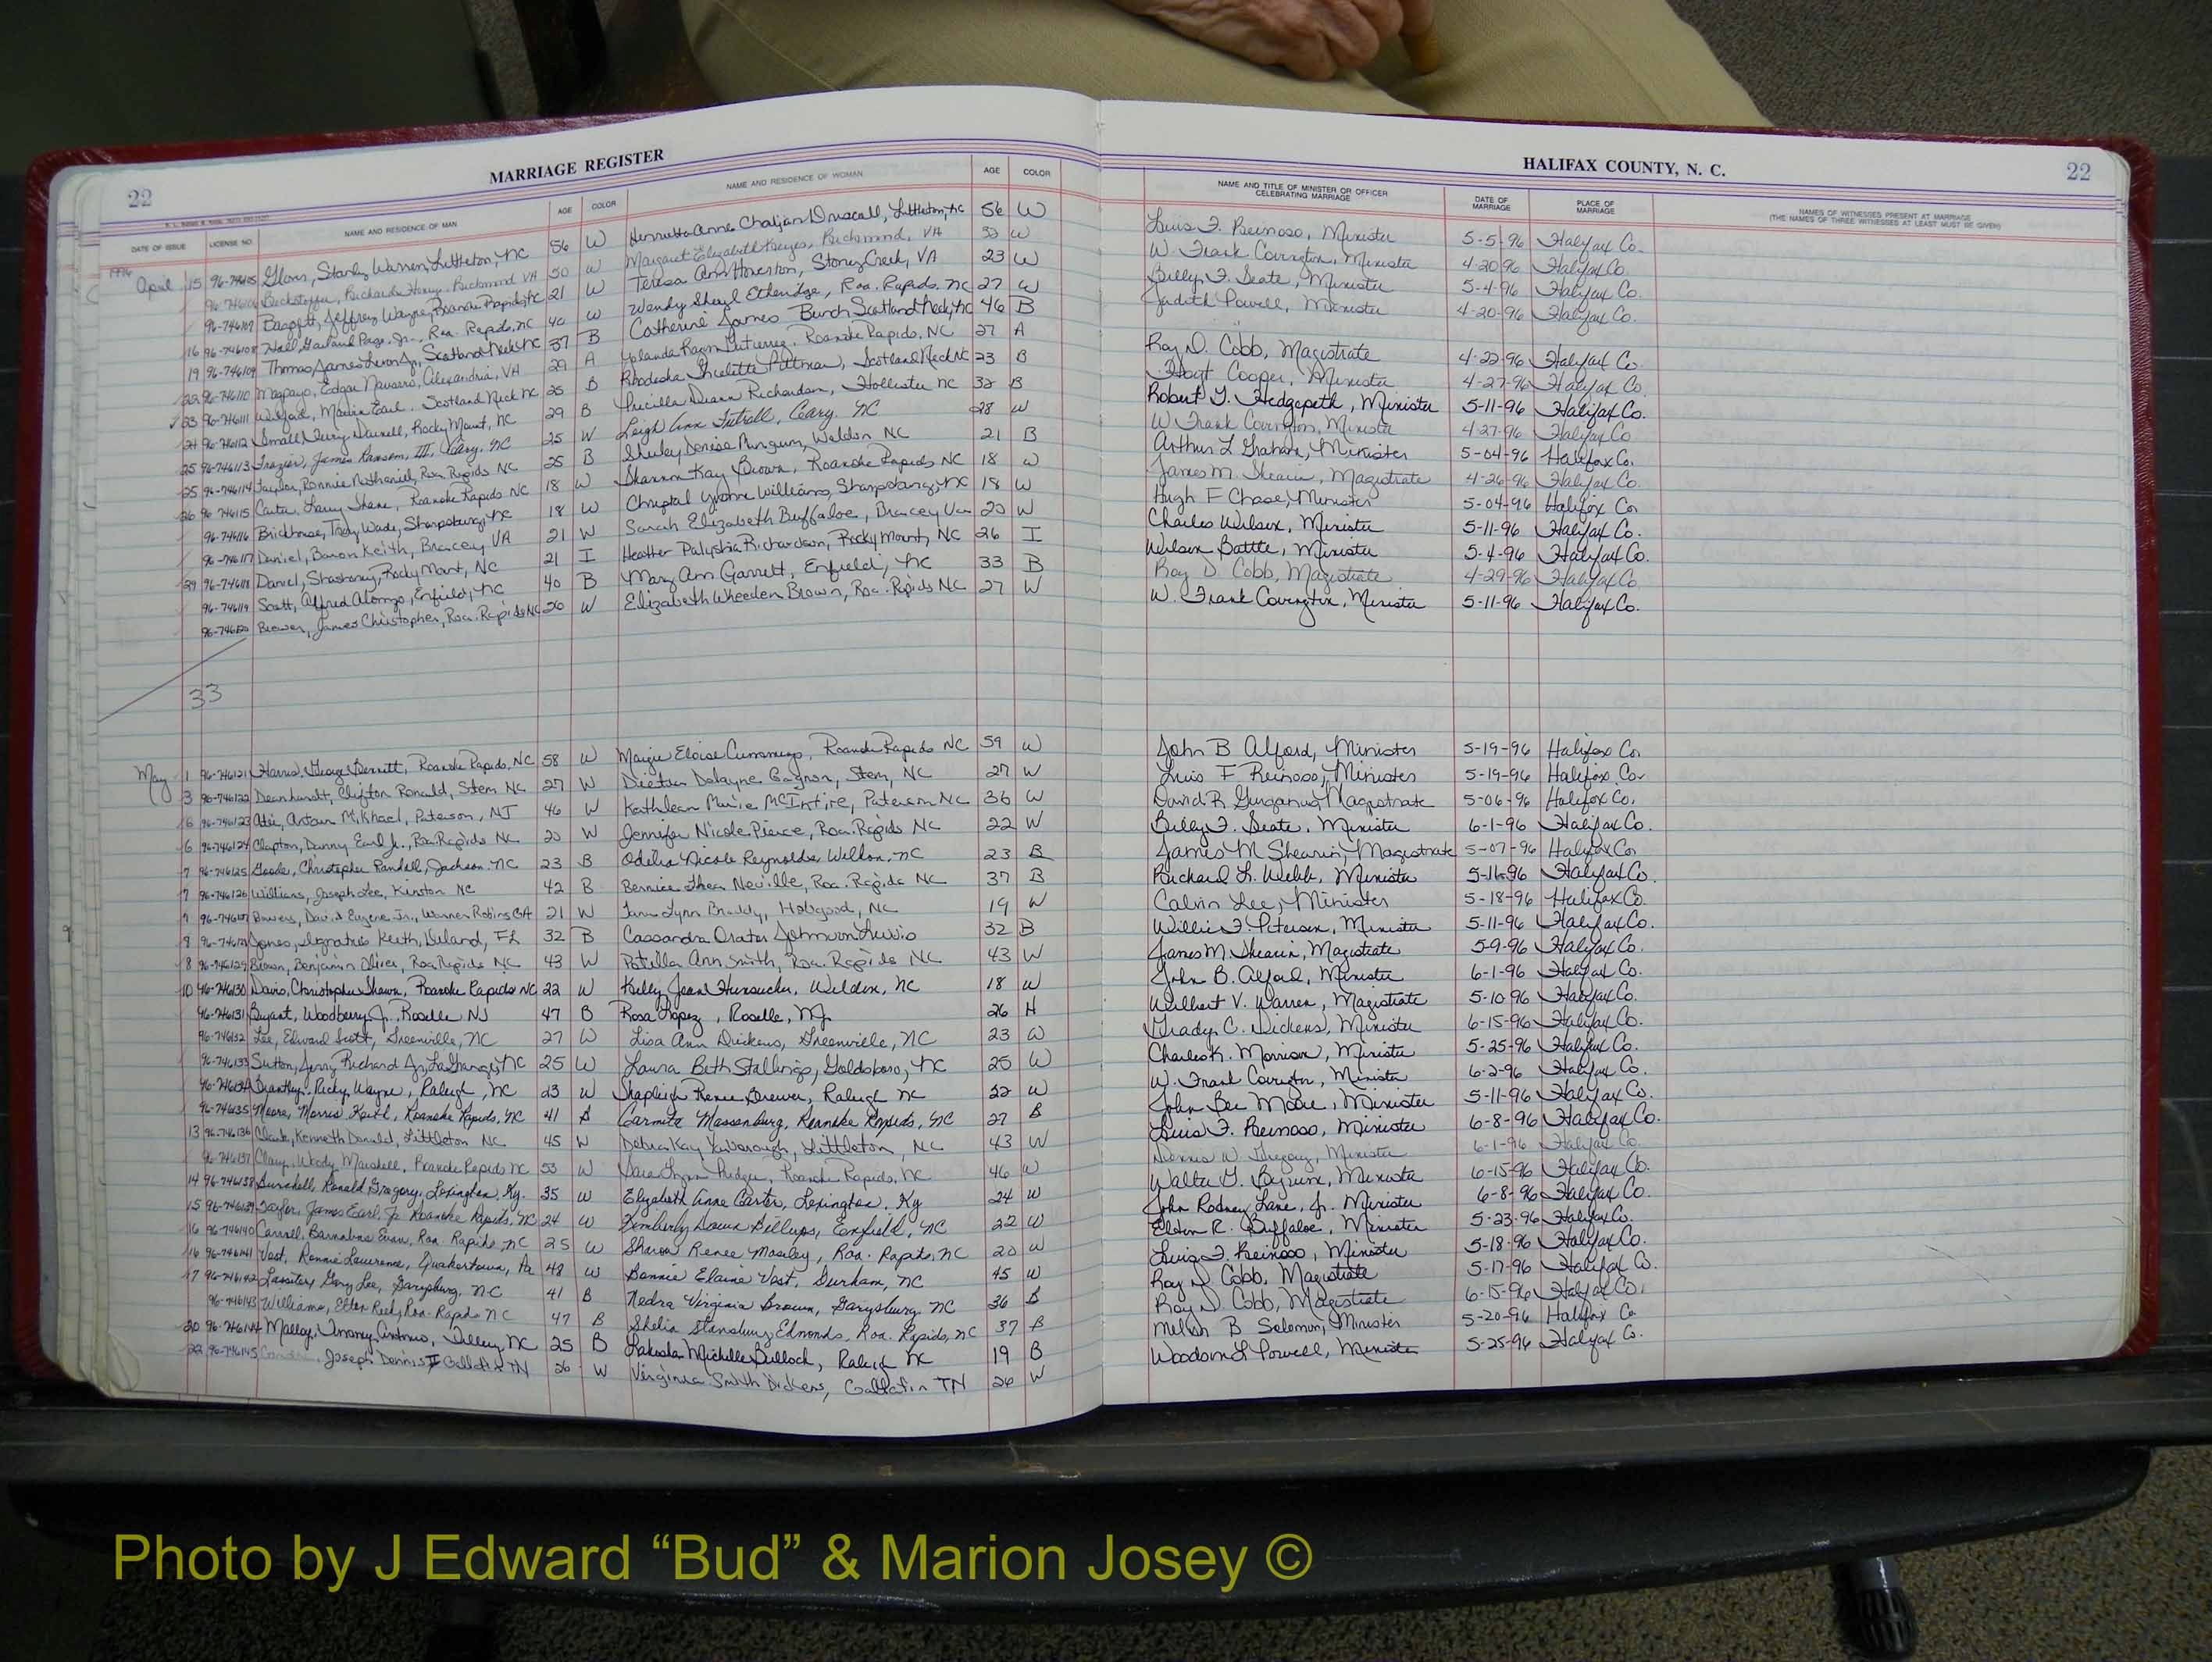 22 MARRIAGE REGISTER
HALIFAX COUNTY, N. C. 22
DATE OF ISSUE LICENSE NO. NAME AND RESIDENCE OF MAN AGE COLOR NAME AND RESIDENCE OF WOMAN AGE COLOR
NAME AND TITLE OF MINISTER OR OFFICER CELEBRATING MARRIAGE DATE OF MARRIAGE PLACE OF MARRIAGE NAMES OF WITNESSES PRESENT AT MARRIAGE (THE NAMES OF THREE WITNESSES AT LEAST MUST BE GIVEN)
1996
April 15 96-746105 Glover, Stanly Warren, Littleton, NC 56 W Henrietta Anne Driscoll, Littleton, NC 56 W Luis F. Reinoso, Minister 5-5-96 Halifax Co.
96-746106 Richmond VA 50 W Margaret Elizabeth Richmond, VA 53 W W. Frank Covington, Minister 4-20-96 Halifax Co.
96-746107 Baggett, Jeffrey Wayne, Roanoke Rapids, NC 21 W Teresa Ann Stoney Creek, VA 23 W Billy F. Seate, Minister 5-4-96 Halifax Co.
16 96-746108 Hall, Garland Page, Jr., Roa. Rapids, NC 40 W Wendy Sheryl Etheridge, Roa. Rapids, NC 27 W Judith Powell, Minister 4-20-96 Halifax Co.
19 96-746109 Thomas, James Jr, Scotland Neck NC 37 B Catherine James Burch Scotland Neck, NC 46 B
22 96-746110 Magpayo, Edgar Navarro, Alexandria, VA 29 A Yolanda Gutierrez, Roanoke Rapids, NC 27 A Roy D. Cobb, Magistrate 4-22-96 Halifax Co.
23 96-746111 Marvin Earl, Scotland Neck NC 25 B Rhodesha Pittman, Scotland Neck NC 23 B Hoyt Cooper, Minister 4-27-96 Halifax Co.
24 96-746112 Small, Darnell, Rocky Mount, NC 29 B Pricilla Diann Richardson, Hollister NC 32 B Robert J. Hedgepeth, Minister 5-11-96 Halifax Co.
25 96-746113 Frazier, James Ransom, III, Cary, NC 25 W Leigh Ann Futrell, Cary, NC 28 W W. Frank Covington, Minister 4-27-96 Halifax Co
25 96-746114 Taylor, Ronnie Nathaniel, Roa. Rapids NC 25 B Shirley Denise Mangum, Weldon NC 21 B Arthur L Graham, Minister 5-04-96 Halifax Co.
26 96-746115 Carter, Larry Shane, Roanoke Rapids NC 18 W Shannon Kay Brown, Roanoke Rapids NC 18 W James M. Shearin, Magistrate 4-26-96 Halifax Co.
96-746116 Brickhouse, Troy Wade, Sharpsburg, NC 18 W Chrystal Yvonne Williams, Sharpsburg, NC 18 W Hugh F Chase, Minister 5-04-96 Halifax Co.
96-746117 Daniel, Baron Keith, Bracey VA 21 W Sarah Elizabeth Buffaloe, Bracey Va 20 W Charles Wilson, Minister 5-11-96 Halifax Co.
29 96-746118 Daniel, Rocky Mount, NC 21 I Heather Richardson, Rocky Mount, NC 26 I Wilson Battle, Minister 5-4-96 Halifax Co.
96-746119 Scott, Alfred Alonzo, Enfield, NC 40 B Mary Ann Garrett, Enfield, NC 33 B Roy D Cobb, Magistrate 4-29-96 Halifax Co
96-746120 Brewer, James Christopher, Roa. Rapids NC 30 W Elizabeth Wheeden Brown, Roa. Rapids NC 27 W W. Frank Covington, Minister 5-11-96 Halifax Co.
33
May 1 96-746121 Harris, George Bennett, Roanoke Rapids, NC 58 W Mazie Eloise Cummings, Roanoke Rapids NC 59 W John B Alford, Minister 5-19-96 Halifax Co.
3 96-746122 Deanhardt, Clifton Ronald, Stem NC 27 W Delayne Gagnon, Stem, NC 27 W Luis F Reinoso, Minister 5-19-96 Halifax Co.
6 96-746123 Mikhael, Paterson, NJ 46 W Kathleen Marie McIntire, Paterson NC 36 W David R Gurganus, Magistrate 5-06-96 Halifax Co.
6 96-746124 Clapton, Danny Earl Jr., Roa. Rapids NC 20 W Jennifer Nicole Pierce, Roa. Rapids NC 22 W Billy F. Seate, Minister 6-1-96 Halifax Co.
7 96-746125 Goode, Christopher Randall, Jackson NC 23 B Odelia Nicole Reynolds, Weldon, NC 23 B James M Shearin, Magistrate 5-07-96 Halifax Co.
7 96-746126 Williams, Joseph Lee, Kinston NC 42 B Bernice Neville, Roa. Rapids NC 37 B Richard L. Webb, Minister 5-11-96 Halifax Co.
7 96-746127 Bowers, David Eugene Jr., Warner Robins GA 21 W Lynn Braddy, Hobgood, NC 19 W Calvin Lee, Minister 5-18-96 Halifax Co.
8 96-746128 Jones, Ignatius Keith, Deland, FL 32 B Cassandra Johnson Lewis 32 B Willie F. Peterson, Minister 5-11-96 Halifax Co.
8 96-746129 Brown, Benjamin Oliver, Roa Rapids NC 43 W Patilla Ann Smith, Roa. Rapids NC 43 W James M. Shearin, Magistrate 5-9-96 Halifax Co.
10 96-746130 Davis, Christopher Shawn, Roanoke Rapids NC 22 W Kelly Jean Hunsucker, Weldon, NC 18 W John B. Alford, Minister 6-1-96 Halifax Co.
96-746131 Bryant, Woodberry Jr., Roselle NJ 47 B Rosa Lopez, Roselle, NJ 26 H Wilbert V. Warren, Magistrate 5-10-96 Halifax Co.
96-746132 Lee, Edward Scott, Greenville, NC 27 W Lisa Ann Dickens, Greenville, NC 23 W Grady C. Dickens, Minister 6-15-96 Halifax Co.
96-746133 Sutton, Jerry Richard Jr, La Grange, NC 25 W Laura Beth Stallings, Goldsboro, NC 25 W Charles K. Morrison, Minister 5-25-96 Halifax Co.
96-746134 Brantley, Ricky Wayne, Raleigh, NC 23 W Shapleigh Renee Brewer, Raleigh NC 22 W W. Frank Covington, Minister 6-2-96 Halifax Co.
96-746135 Moore, Morris Karl, Roanoke Rapids, NC 41 B Carmita Massenburg, Roanoke Rapids, NC 27 B John Lee Moore, Minister 5-11-96 Halifax Co.
13 96-746136 Clark, Kenneth Donald, Littleton NC 45 W Debra Kay Yarborough, Littleton, NC 43 W Luis F. Reinoso, Minister 6-8-96 Halifax Co.
96-746137 Clary, Woody Marshall, Roanoke Rapids NC 53 W Sara Lynn Pridgen, Roanoke Rapids, NC 46 W Dennis W. Gregory, Minister 6-1-96 Halifax Co.
14 96-746138 Ronald Gregory, Lexington, Ky. 35 W Elizabeth Anne Carter, Lexington, Ky 24 W Walter G. Minister 6-15-96 Halifax Co.
15 96-746139 Taylor, James Earl, Jr. Roanoke Rapids, NC 24 W Kimberly Dawn Billups, Enfield, NC 22 W John Rodney Lane, Jr. Minister 6-8-96 Halifax Co.
16 96-746140 Carroll, Barnabas Evan, Roa. Rapids, NC 25 W Sharon Renee Mosley, Roa. Rapids, NC 20 W Elton R. Buffaloe, Minister 5-23-96 Halifax Co.
16 96-746141 Vest, Ronnie Lawrence, Quakertown, Pa 48 W Bonnie Elaine Vest, Durham, NC 45 W Luis F. Reinoso, Minister 5-18-96 Halifax Co.
17 96-746142 Lassiter, Gary Lee, Garysburg, NC 41 B Nedra Virginia Brown, Garysburg, NC 36 B Roy D Cobb, Magistrate 5-17-96 Halifax Co.
96-746143 Williams, Elton Roa. Rapids NC 47 B Shelia Stansbury Edmonds, Roa. Rapids, NC 37 B Roy D. Cobb, Magistrate 6-15-96 Halifax Co.
20 96-746144 Tillery, NC 25 B Lakesha Michelle Bulloch, Raleigh NC 19 B Melvin B Solomon, Minister 5-20-96 Halifax Co
22 96-746145 Joseph Dennis II Gallatin TN 26 W Virginia Smith Dickens, Gallatin TN 26 W Woodson L Powell, Minister 5-25-96 Halifax Co.
Photo by J Edward “Bud” & Marion Josey ©